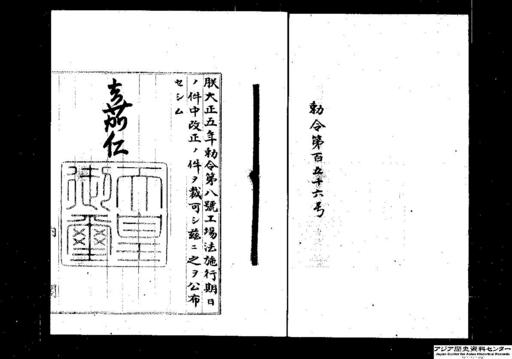 勅令第百五十六号
朕大正五年勅令第八號工場法施行期日
ノ件中改正ノ件ヲ裁可シ茲ニ之ヲ公布
セシム
嘉仁
天皇御璽
内
閣
アジア歴史資料センター
Japan Center for Asian Historical Records